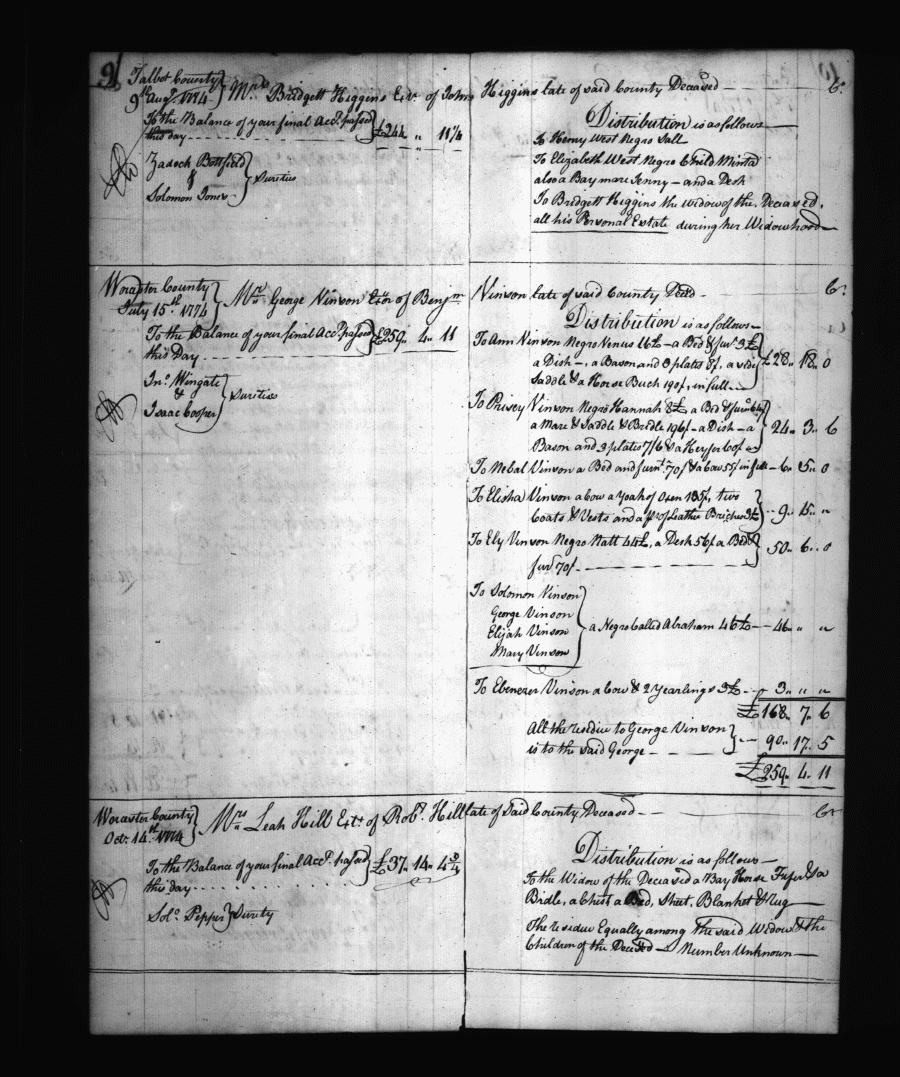 9
Talbot County
9th Augt. 1774 } Mrs. Bridgett Higgins Extx. of John Higgins late of said County Deceased Cr.
To the Balance of your final Acct. passed
this day } £244 " 11¼
Zadock Bottfield
&
Solomon Jones } Sureties
Distribution is as follows
To Henry West Negro Sall
To Elizabeth West Negro Child Minta
also a Bay mare Jenny — and a Desk
To Bridgett Higgins the widow of the Deceased,
all his Personal Estate during her Widowhood
Worcester County
July 15th. 1774 } Mr. George Vinson Exor of Benjn. Vinson late of said County Decd. Cr.
To the Balance of your final Acct. passed
this Day } £259. 4. 11
Jno. Wingate
&
Isaac Cooper } Sureties
Distribution is as follows
To Ann Vinson Negro Venus 16£ — a Bed & furr. 3£
a Dish —, a Bason and 3 plates 8/, a side
Saddle & a Horse Buch 190/, in full } £28. 18. 0
To Prisey Vinson Negro Hannah 8£, a Bed & furn. 64/
a Mare & Saddle & Bridle 196/ — a Dish — a
Bason and 3 plates 7/6 & a Heyfer 60/ } 24. 3. 6
To Mebal Vinson a Bed and furnt. 70/ & a Cow 55/ in full — 6. 5. 0
To Elisha Vinson a Cow a Yoak of Oxen 135/, two
Coats & Vests and a pr. of Leather Briches 3£ } 9. 15. "
To Ely Vinson Negro Natt 44£, a Desk 56/ a Bed &
fur 70/ } 50. 6. 0
To Solomon Vinson
George Vinson
Elijah Vinson
Mary Vinson } a Negro Called Abraham 46£ — 46. " "
To Ebenezer Vinson a Cow & 2 Yearlings 3£ 3. " "
£168. 7. 6
All the residue to George Vinson
is to the said George } 90. 17. 5
£259. 4. 11
Worcester County
Oct. 14th. 1774 } Mrs. Leah Hill Extx of Robt. Hill late of Said County Deceased Cr.
To the Balance of your final Acct. passed
this day } £37. 14. 4¾
Solo. Pepper } Surety
Distribution is as follows
To the Widow of the Deceased a Bay Horse & a
Bridle, a Chist a Bed, Sheet, Blanket & Rug
The residue Equally among the said Widow & the
Children of the Deceased — Number Unknown